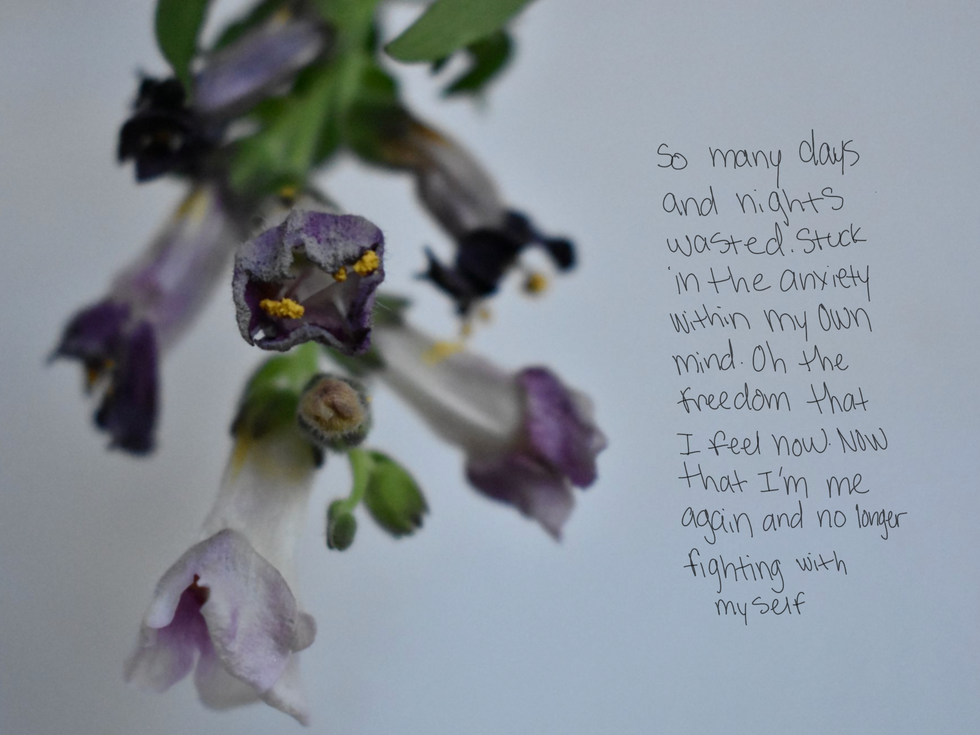 So many days
and nights
wasted. Stuck
in the anxiety
within my own
mind. Oh the
freedom that
I feel now. Now
that I'm me
again and no longer
fighting with
myself